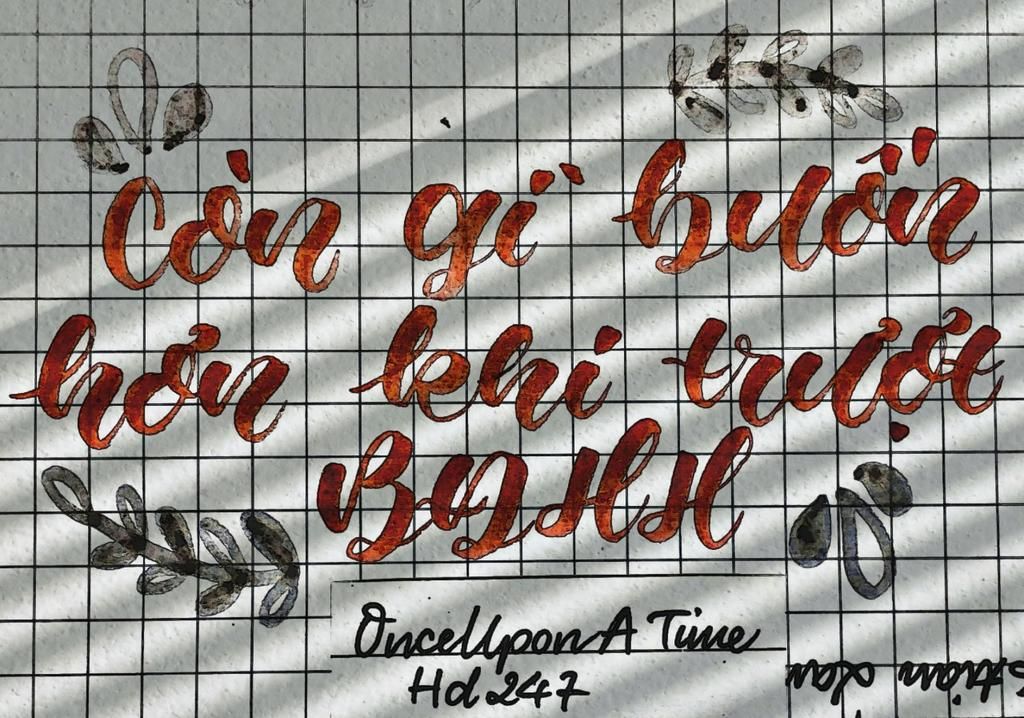 Còn gì buồn
hơn khi trượt
BDHH
OnceUpon A Time
Hd 247